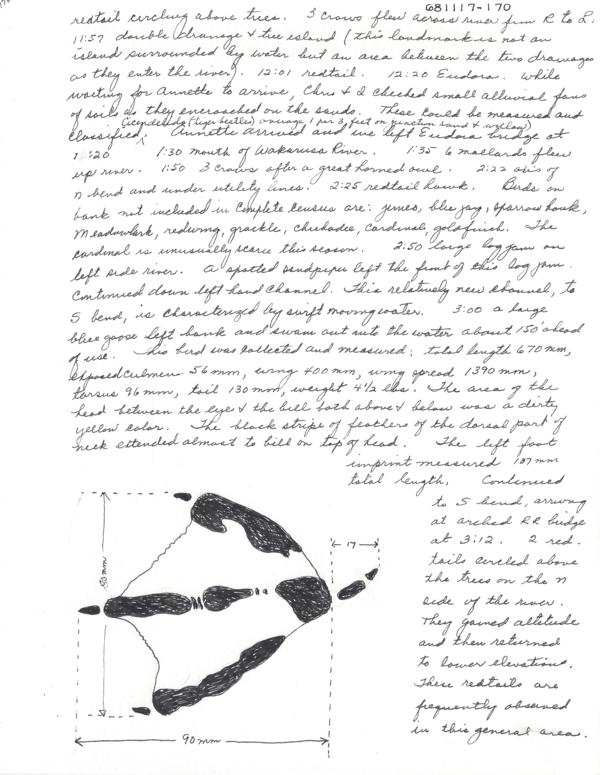 681117-170
redtail circling above trees. 3 crows flew across river from R to L.
11:57 double drainage & tree island (this landmark is not an
island surrounded by water but an area between the two drainages
as they enter the river). 12:01 redtail. 12:20 Eudora. While
waiting for Annette to arrive, Chris & I checked small alluvial fans
of soils as they encroached on the sands. These could be measured and
Cicendelids (tiger beetles) average 1 per 3 feet on junction sand &
classified. Annette arrived and we left Eudora bridge at
1:20 1:30 mouth of Wakarusa River. 1:35 6 mallards flew
up river. 1:50 3 crows after a great horned owl. 2:22 axis of
N bend and under utility lines. 2:25 redtail hawk. Birds on
bank not included in complete census are: juncos, blue jay, sparrow hawk,
Meadowlark, redwing, grackle, chickadee, cardinal, goldfinch. The
cardinal is unusually scarce this season. 2:50 large log jam on
left side river. A spotted sandpiper left the front of this log jam.
Continued down left hand channel. This relatively new channel, to
S bend, is characterized by swift moving water. 3:00 a large
blue goose left bank and swam out into the water about 150' ahead
of use. This bird was collected and measured; total length 670 mm,
exposed culmen 56 mm, wing 400 mm, wing spread 1390 mm,
tarsus 96 mm, tail 130 mm, weight 4 1/2 lbs. The area of the
head between the eye & the bill both above & below was a dirty
yellow color. The black stripe of feathers of the dorsal part of
neck extended almost to bill on top of head. The left foot
imprint measured 107 mm
total length. Continued
to S bend, arriving
at arched RR bridge
at 3:12. 2 red-
tails circled above
the trees on the N
side of the river.
They gained altitude
and then returned
to lower elevations.
These redtails are
frequently observed
in this general area.
17
mm
90 mm